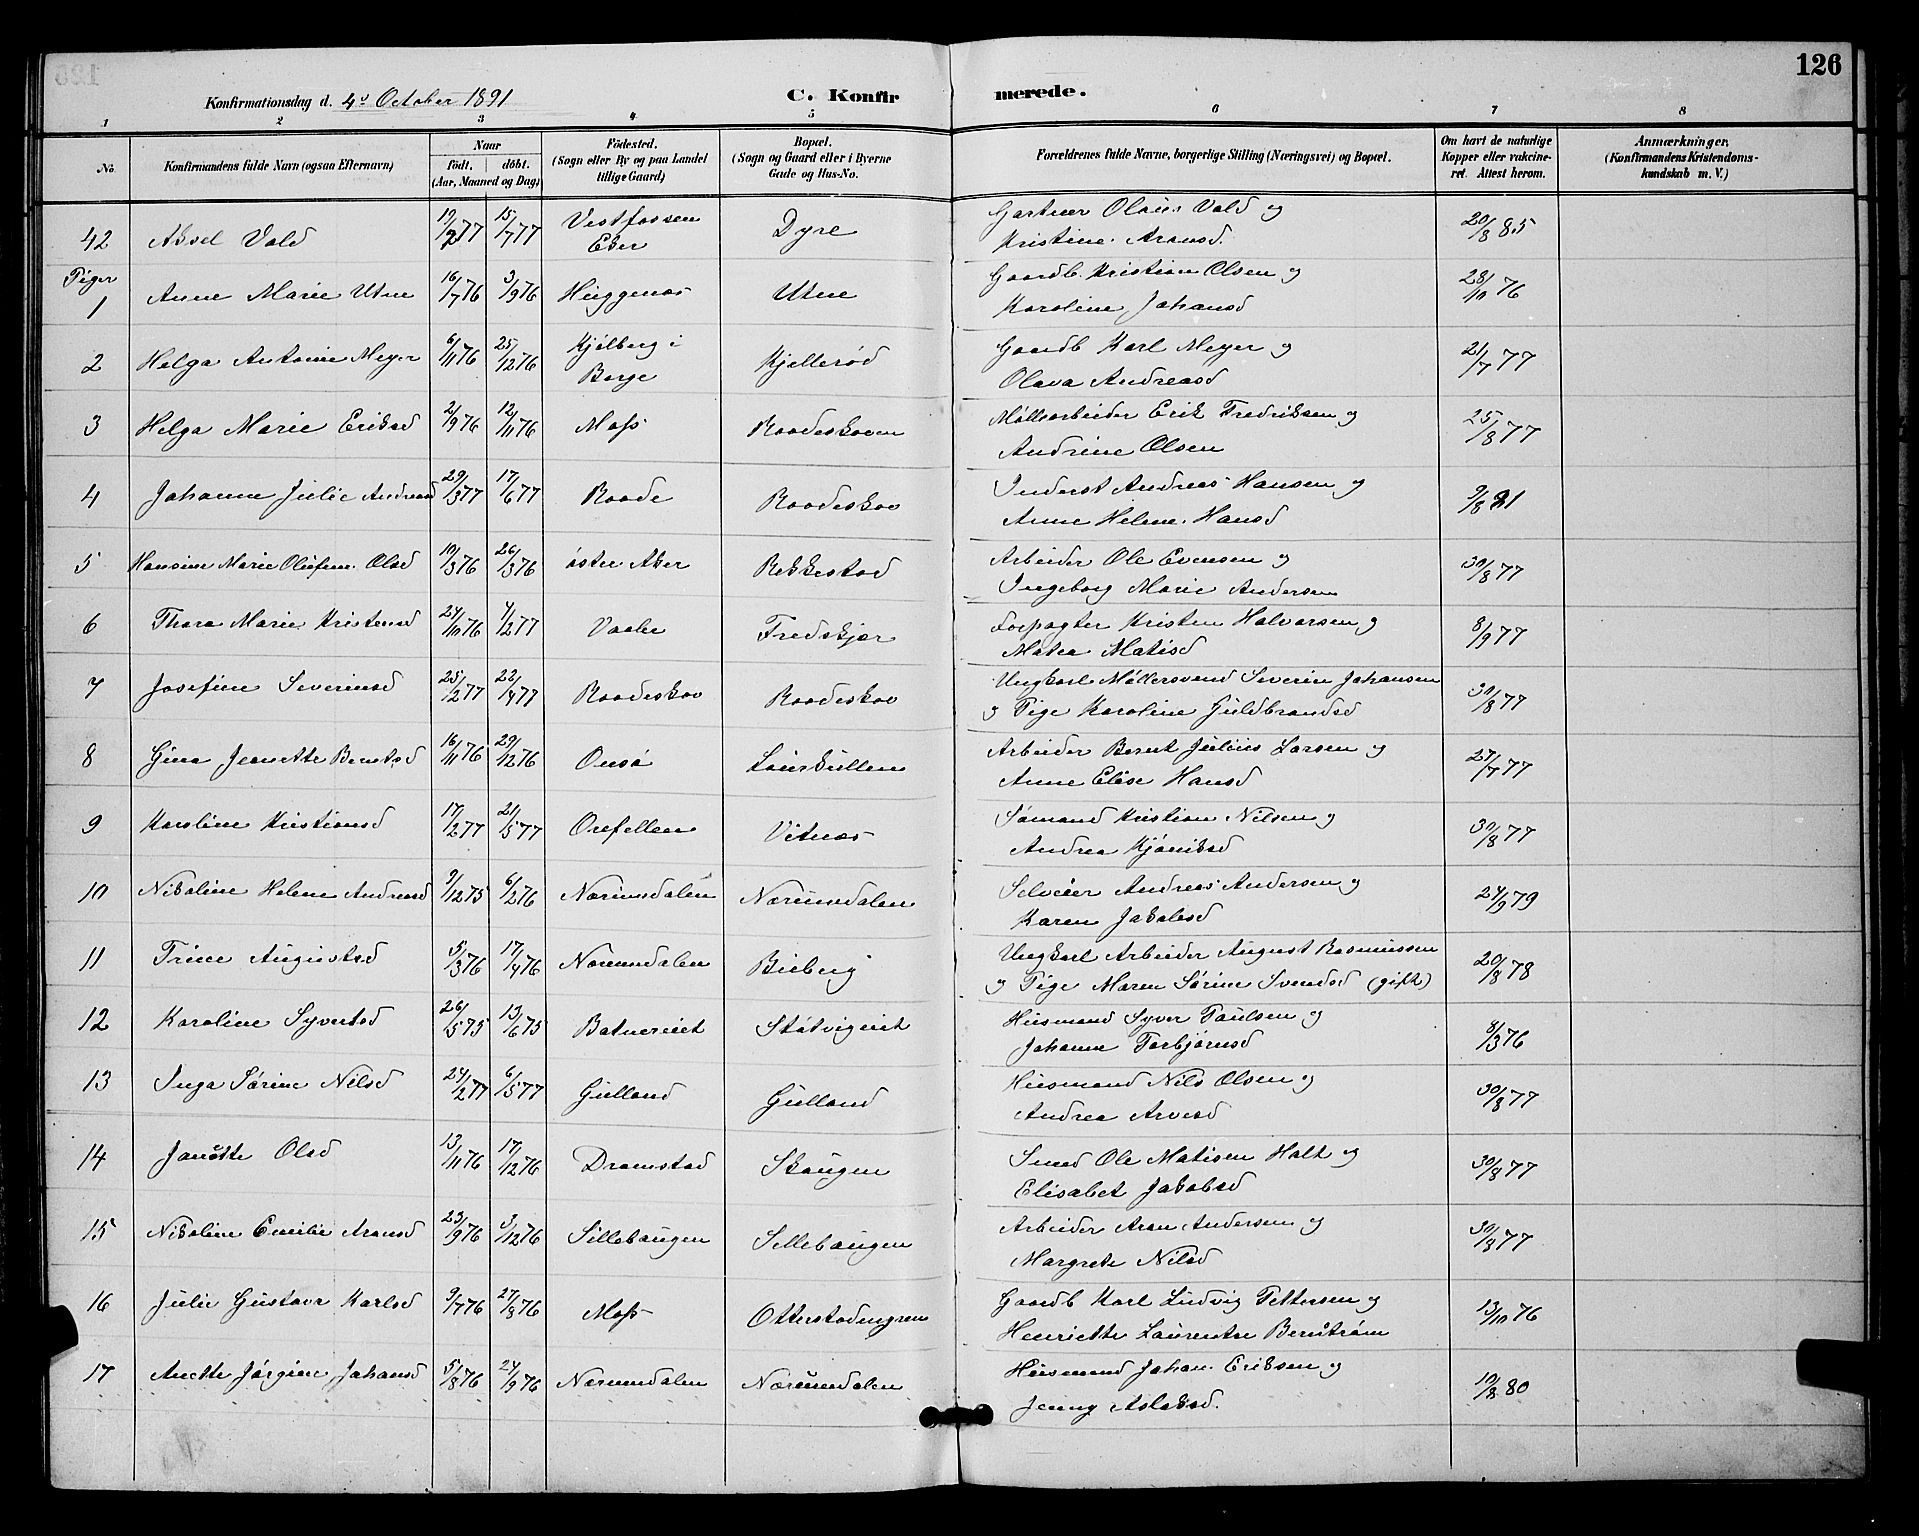 126
Konfirmationsdag d. 4de October 1891 C. Konfirmerede.
1 2 3 4 5 6 7 8
No. Konfirmandens fulde Navn (ogsaa Efternavn) Naar født. døbt. (Aar, Maaned og Dag) Fødested. (Sogn eller By og paa Landet tillige Gaard) Bopæl. (Sogn og Gaard eller i Byerne Gade og Hus-No. Forældrenes fulde Navne, borgerlige Stilling (Næringsvei) og Bopæl. Om havt de naturlige Kopper eller vakcineret. Attest herom. Anmærkninger, (Konfirmandens Kristendomskundskab m. V.)
42 Aksel Vold 19/2 77 15/7 77 Vestfossen Eker Dyre Gartner Olaus Vold og
Kristine Aronsd. 20/8 85
Piger
1 Anne Marie Utne 16/7 76 3/9 76 Huggenæs Utne Gaardb. Kristian Olsen og
Karoline Johansd 28/10 76
2 Helga Antonie Meyer 6/11 76 25/12 76 Kjølberg i Borge Kjellerød Gaardb Karl Meyer og
Olava Andreasd 21/7 77
3 Helga Marie Eriksd 2/9 76 12/11 76 Moss Raadeskoven Møllearbeider Erik Fredriksen og
Andrine Olsen 25/8 77
4 Johanne Julie Andreasd 29/3 77 17/6 77 Raade Raadeskov Inderst Andreas Hansen og
Anne Helene Hansd 9/8 81
5 Hansine Marie Olufine Olsd 10/3 76 26/3 76 Øster Aker Rekkestad Arbeider Ole Evensen og
Ingeborg Marie Andersen 30/8 77
6 Thora Marie Kristensd 24/10 76 4/2 77 Vaaler Fredskjær Forpagter Kristen Halvorsen og
Matea Matisd 8/9 77
7 Josefine Severinsd 25/2 77 22/4 77 Raadeskov Raadeskov Ungkarl Møllersvend Severin Johansen
og Pige Karoline Guldbrandsd 31/8 77
8 Gina Jeanette Berntsd 16/11 76 29/12 76 Onsø Laurskullen Arbeider Bernt Julius Larsen og
Anne Elise Hansd 27/7 77
9 Karoline Kristiansd 17/2 77 21/5 77 Orefellen Vitnæs Sømand Kristian Nilsen og
Andrea Kjøniksd 30/8 77
10 Nikoline Helene Andreasd 9/12 75 6/2 76 Narumdalen Narumdalen Selveier Andreas Andersen og
Karen Jakobsd 24/9 79
11 Trine Augustsd 5/3 76 17/4 76 Narumdalen Bieberg Ungkarl Arbeider August Rasmussen
og Pige Maren Sørine Svendsd (gift) 20/8 78
12 Karoline Syvertsd 26/5 75 13/6 75 Batnereiet Støtvigeiet Husmand Syver Paulsen og
Johanne Torbjørnsd 8/3 76
13 Inga Sørine Nilsd 24/2 77 6/5 77 Gulland Gulland Husmand Nils Olsen og
Andrea Arvesd 30/8 77
14 Janette Olsd 13/11 76 17/12 76 Dramstad Skaugen Smed Ole Matisen Holt og
Elisabet Jakobsd 30/8 77
15 Nikoline Emilie Aronsd 23/9 76 3/12 76 Sillebaugen Sillebaugen Arbeider Aron Andersen og
Margrete Nilsd 30/8 77
16 Julie Gustava Karlsd 9/7 76 27/8 76 Moss Otterstadengren Gaardb Karl Ludvig Pettersen og
Henriette Laurentze Bernstrøm 13/10 76
17 Anette Jørgine Johansd 5/8 76 24/9 76 Narumdalen Narumdalen Husmand Johan Eriksen og
Jenny Aslaksd. 10/8 80